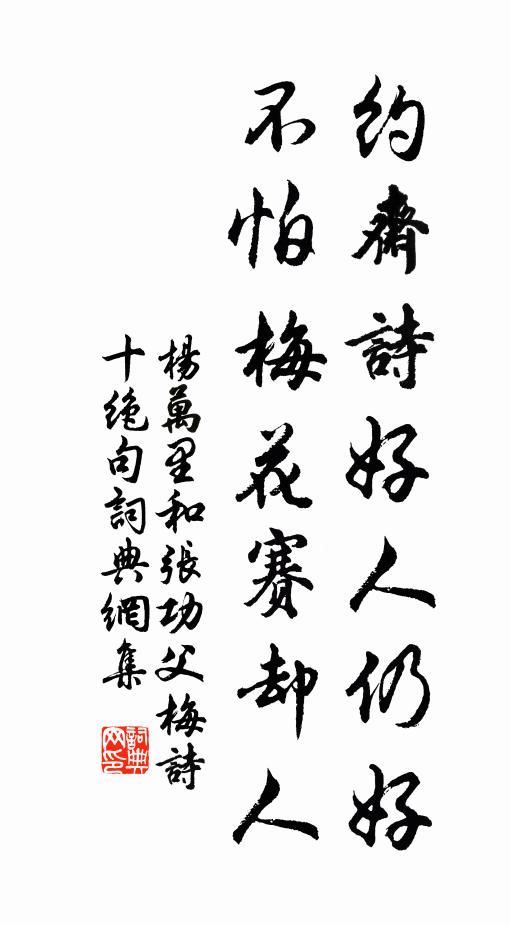 約齋詩好人仍好
不怕梅花賽却人
楊萬里和張功父梅詩
十絶句詞典網集
詞典网印